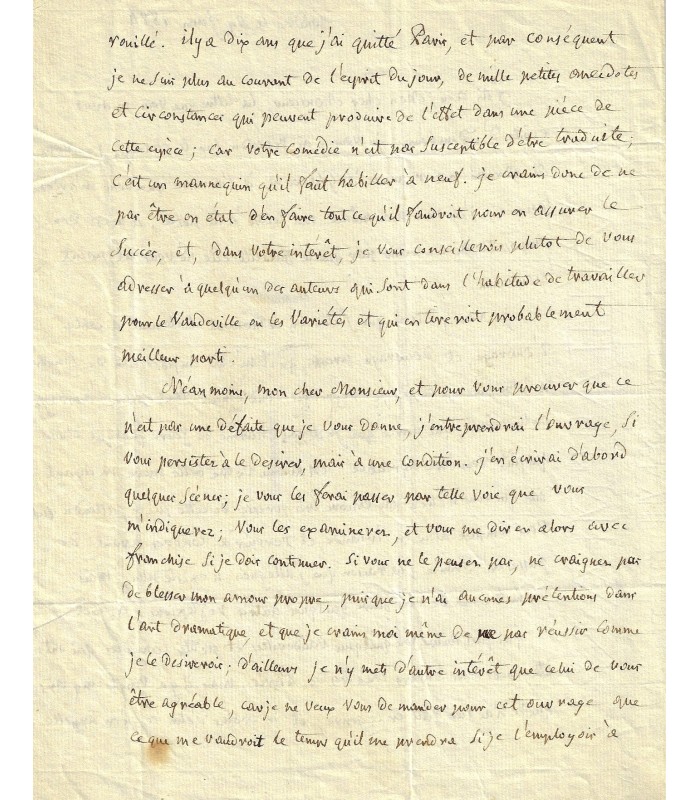 rouillé. il y a dix ans que j'ai quitté Paris, et par conséquent
je ne suis plus au courrent de l'esprit du jour, de mille petites anecdotes
et circonstances qui peuvent produire de l'effet dans une pièce de
cette espèce ; car votre comédie n'est pas susceptible d'être traduite ;
c'est un mannequin qu'il faut habiller à neuf. je crains donc de ne
pas être en état d'en faire tout ce qu'il faudroit pour en assurer le
succès, et, dans votre intérêt, je vous conseillerois plutot de vous
adresser à quelqu'un des auteurs qui sont dans l'habitude de travailler
pour le Vaudeville ou les Variétés et qui en tireroit probablement
meilleur parti.
Néanmoins, mon cher Monsieur, et pour vous prouver que ce
n'est pas une défaite que je vous donne, j'entreprendrai l'ouvrage, si
vous persistez à le desirer, mais à une condition. j'en écrirai d'abord
quelques scènes ; je vous les ferai passer par telle voie que vous
m'indiquerez ; vous les examinerez, et vous me direz alors avec
franchise si je dois continuer. Si vous ne le pensez pas, ne craignez pas
de blesser mon amour propre, puisque je n'ai aucunes prétentions dans
l'art dramatique, et que je crains moi même de pas réussir comme
je le desirerois ; d'ailleurs je n'y mets d'autre intérêt que celui de vous
être agréable, car je ne veux vous demander pour cet ouvrage que
ce que me vaudroit le temps qu'il me prendra si je l'employois à